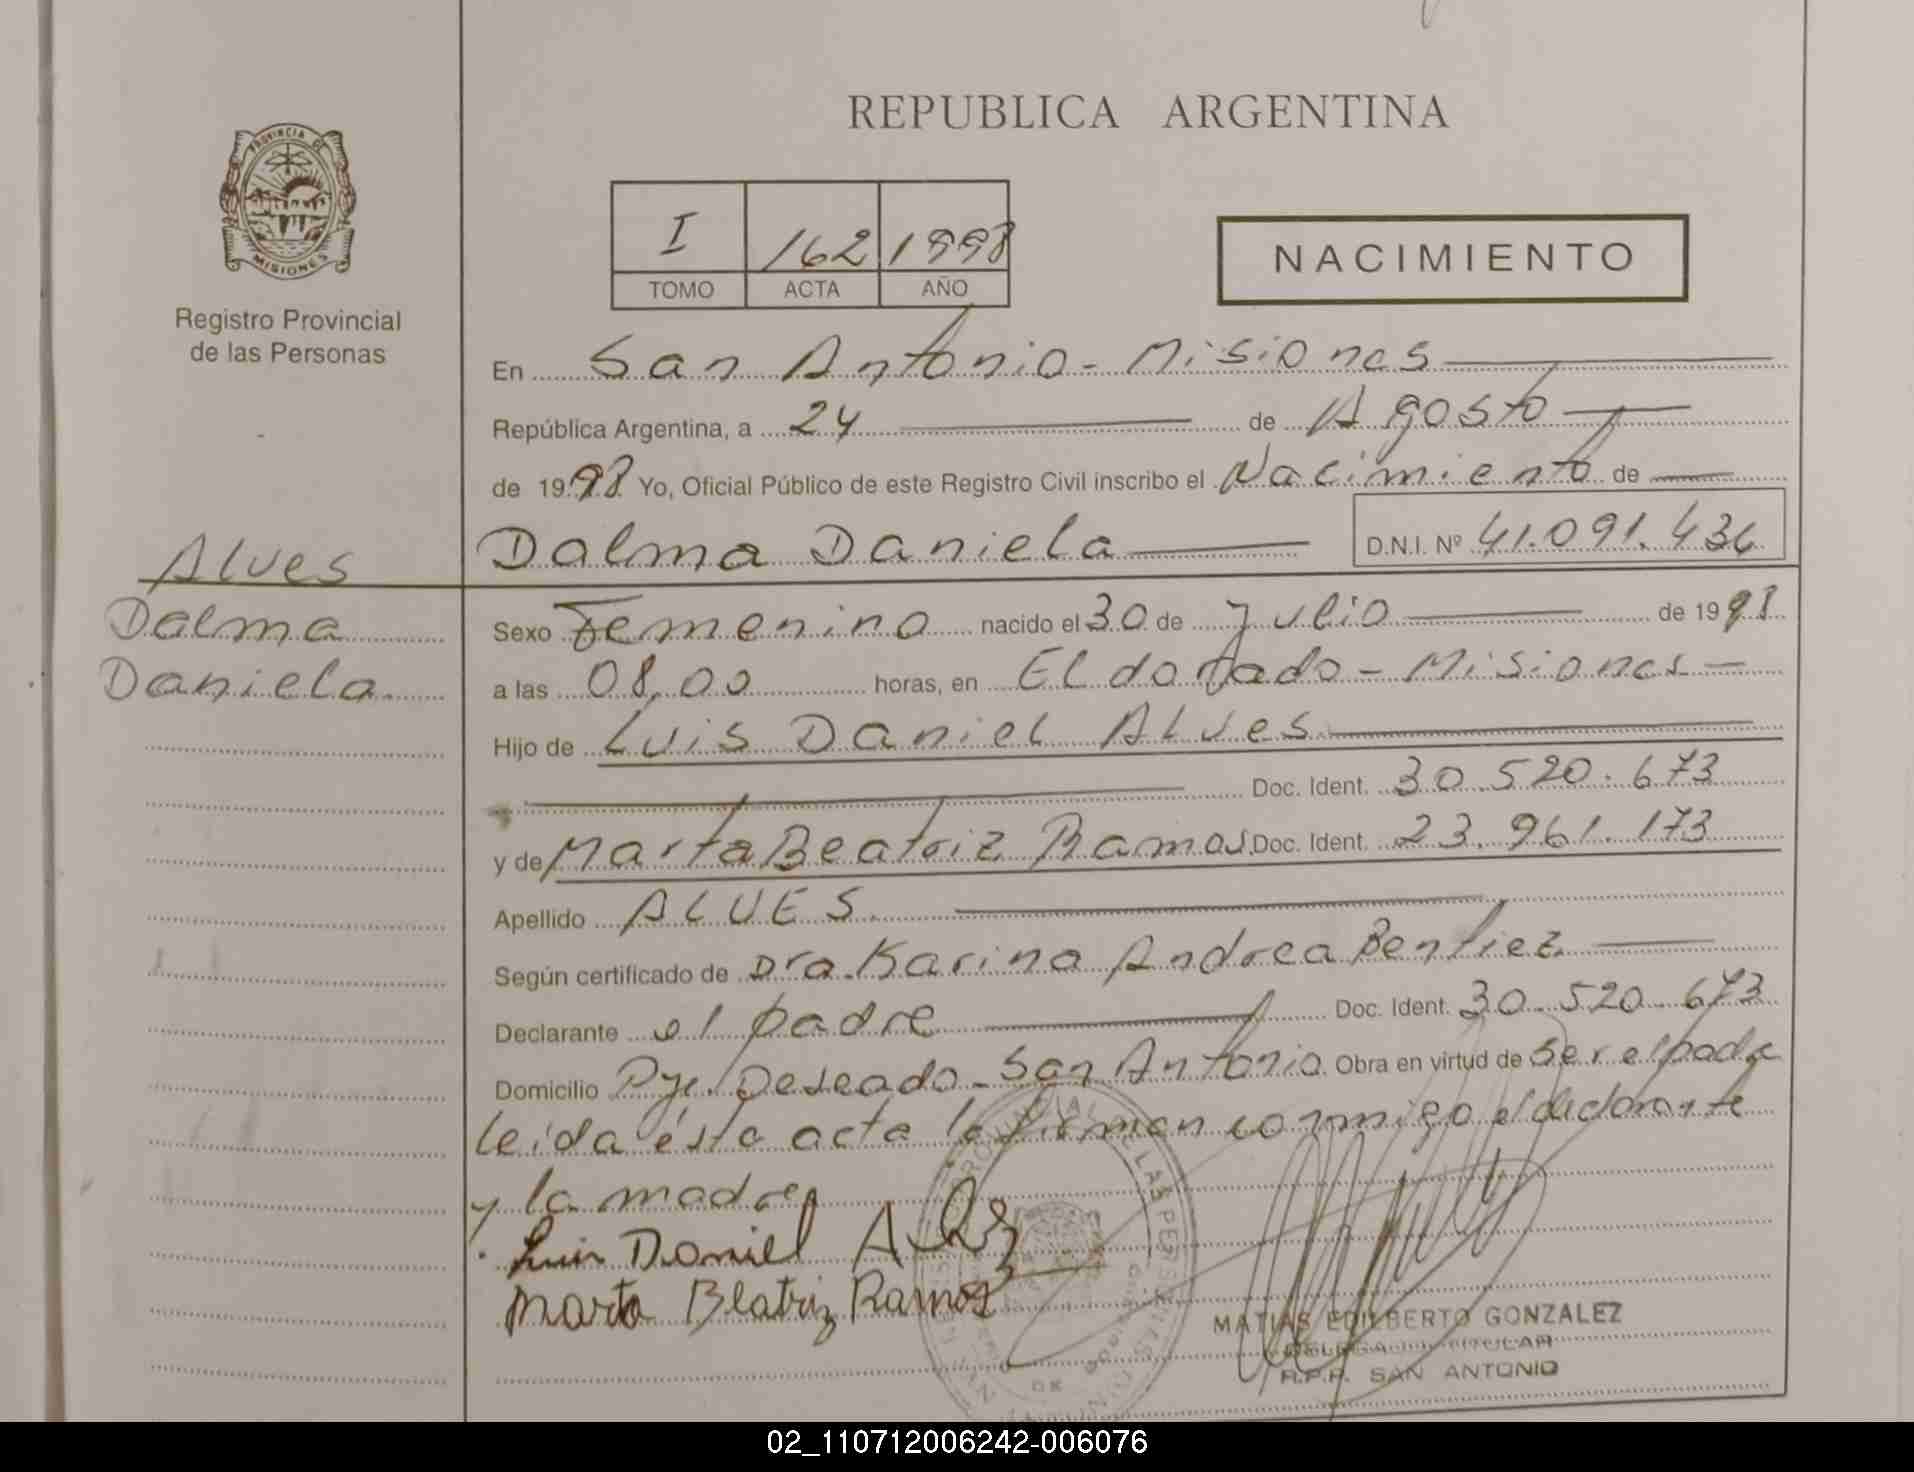 REPUBLICA ARGENTINA
PROVINCIA DE
MISIONES
Registro Provincial
de las Personas
I 162 1998
TOMO ACTA AÑO
NACIMIENTO
En San Antonio - Misiones
República Argentina, a 24 de Agosto
de 1998 Yo, Oficial Público de este Registro Civil inscribo el Nacimiento de
Dalma Daniela D.N.I. Nº 41.091.436
Alves
Dalma
Daniela
Sexo Femenino nacido el 30 de Julio de 1998
a las 08,00 horas, en Eldorado - Misiones
Hijo de Luis Daniel Alves
Doc. Ident. 30.520.673
y de Marta Beatriz Ramos Doc. Ident. 23.961.173
Apellido ALVES
Según certificado de Dra. Karina Andrea Benitez
Declarante el padre Doc. Ident. 30.520.673
Domicilio Pje. Deseado - San Antonio Obra en virtud de ser el padre
leída ésta acta la firman conmigo el declarante
y la madre
Luis Daniel Alves
Marta Beatriz Ramos
MATIAS EDILBERTO GONZALEZ
DELEGADO TITULAR
R.P.P. SAN ANTONIO
02_110712006242-006076